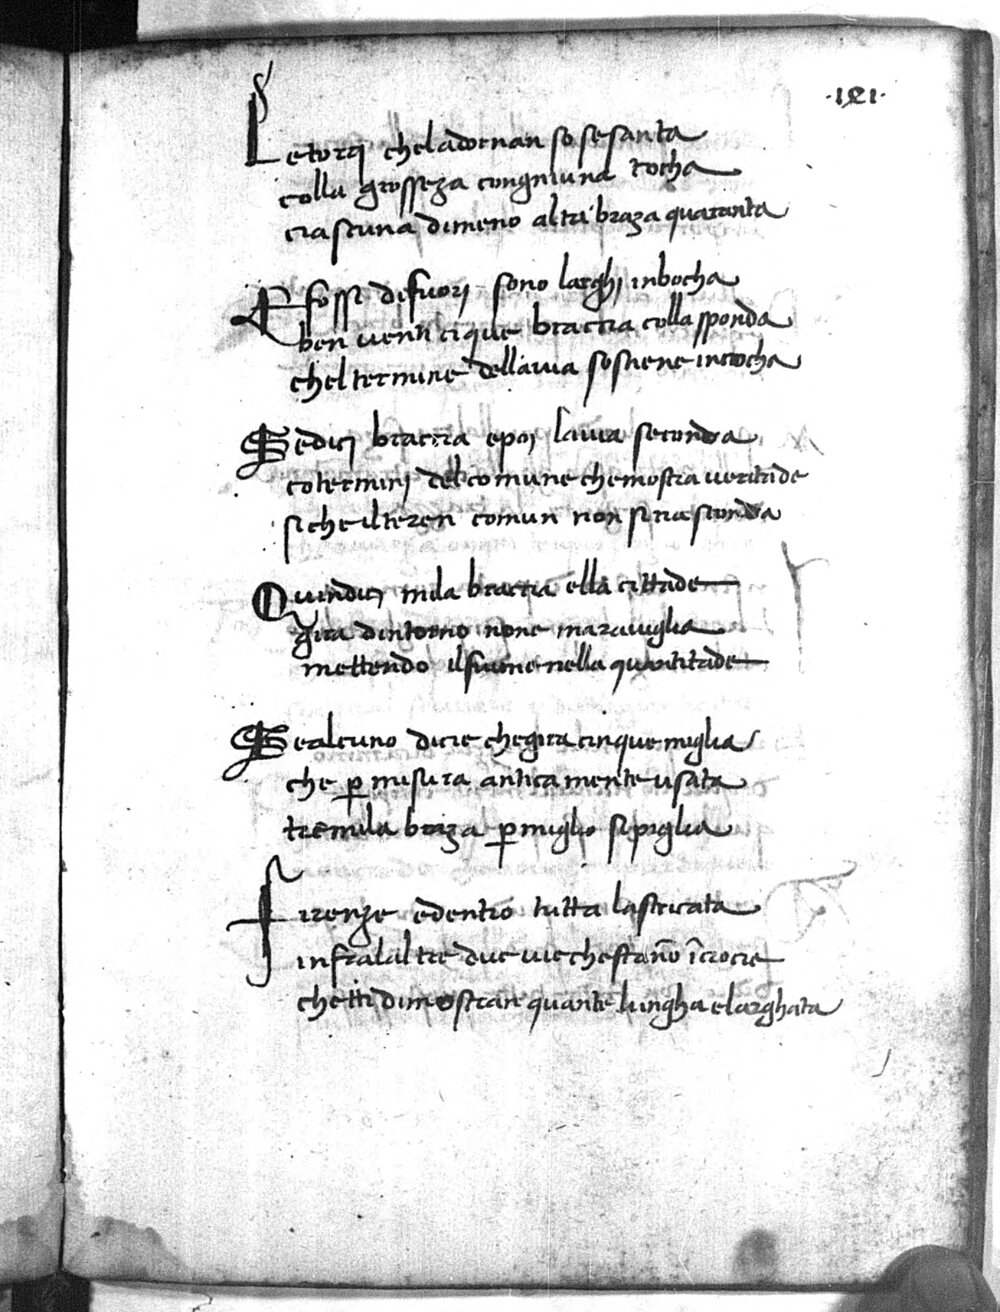 ·121·
Le torri cheladornan so sesanta
colla grosseza congniuna tocha
ciascuna dimeno altri braza quaranta
E fossi difuorj sono larghj inbocha
ben venti cique braccia colla sponda
chel termine dellavia sostiene introcha
Sedicj braccia epoj lavia seconda
cotterminj del comune che mostra veritade
si che il teren comun non si nasconda
Quindicj mila braccia ella cittade
gira dintorno none maraviglia
mettendo ilfiume nella quantitade
Se alcuno dicie che gira cinque miglia
che p misura anticamente usata
tremila braza p miglio si piglia
Firenze e dentro tutta lastricata
infralaltre due vie che stano i crocie
che tti dimostran quante lungha e larghata